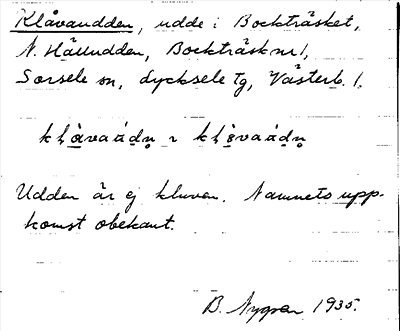 Klåvaudden, udde i Bockträsket,
N. Hålludden, Bockträsk nr 1,
Sorsele sn, Lycksele tg, Västerb. l.
Udden är ej kluven. Namnets upp-
komst obekant.
B. Nygren 1935.